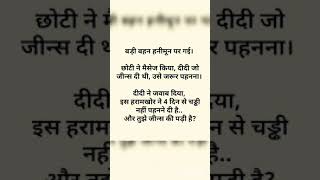 बड़ी बहन हनीमून पर गई।
छोटी ने मैसेज किया, दीदी जो
जीन्स दी थी, उसे जरूर पहनना।
दीदी ने जवाब दिया,
इस हरामखोर ने 4 दिन से चड्डी
नहीं पहनने दी है..
और तुझे जीन्स की पड़ी है?